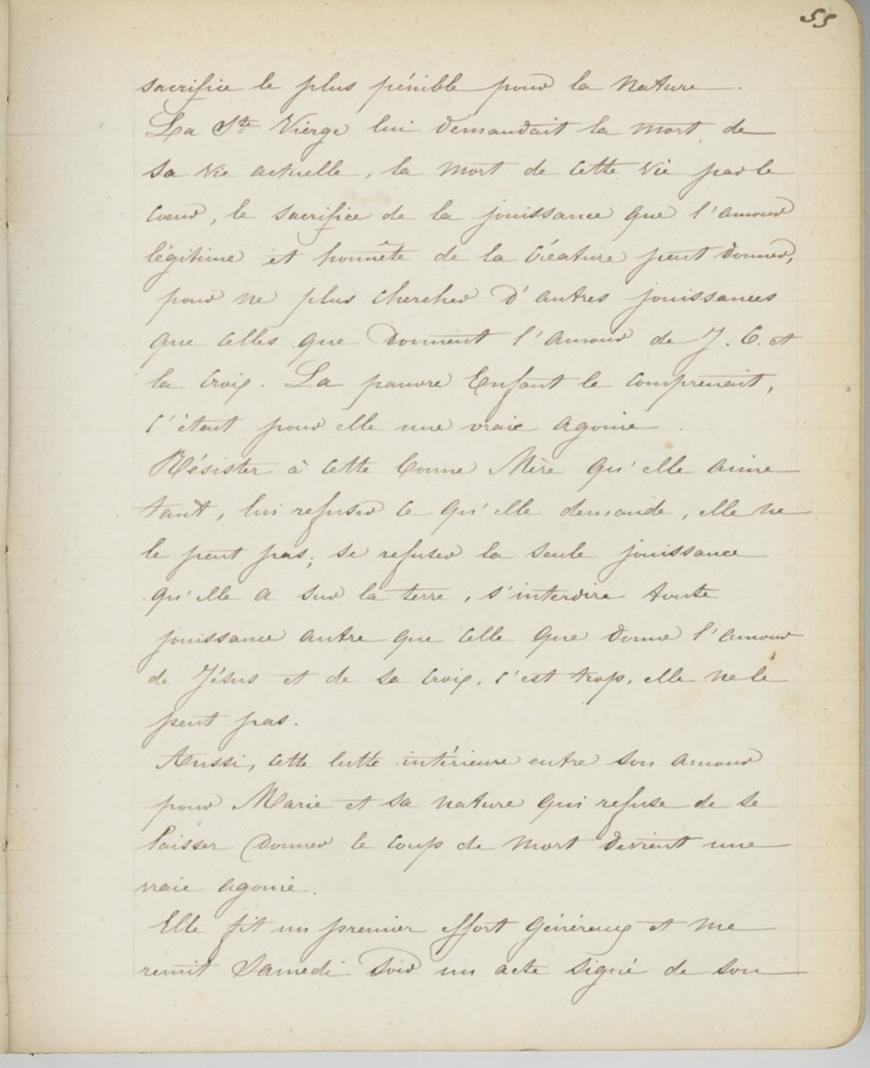 55
sacrifice le plus pénible pour la nature.
La Ste Vierge lui demandait la mort de
sa vie actuelle, la mort de cette vie par le
cœur, le sacrifice de la jouissance que l'amour
légitime et honnête de la créature peut donner,
pour ne plus chercher d'autres jouissances
que celles que donnent l'amour de J. C. et
la croix. La pauvre Enfant le comprenait,
c'était pour elle une vraie agonie.
Résister à cette bonne Mère qu'elle aime
tant, lui refuser ce qu'elle demande, elle ne
le peut pas; se refuser la seule jouissance
qu'elle a sur la terre, s'interdire toute
jouissance autre que celle que donne l'amour
de Jésus et de sa croix, c'est trop, elle ne le
peut pas.
Aussi, cette lutte intérieure entre son amour
pour Marie et sa nature qui refuse de se
laisser donner le coup de mort devient une
vraie agonie.
Elle fit un premier effort généreux et me
remit Samedi soir un acte signé de son